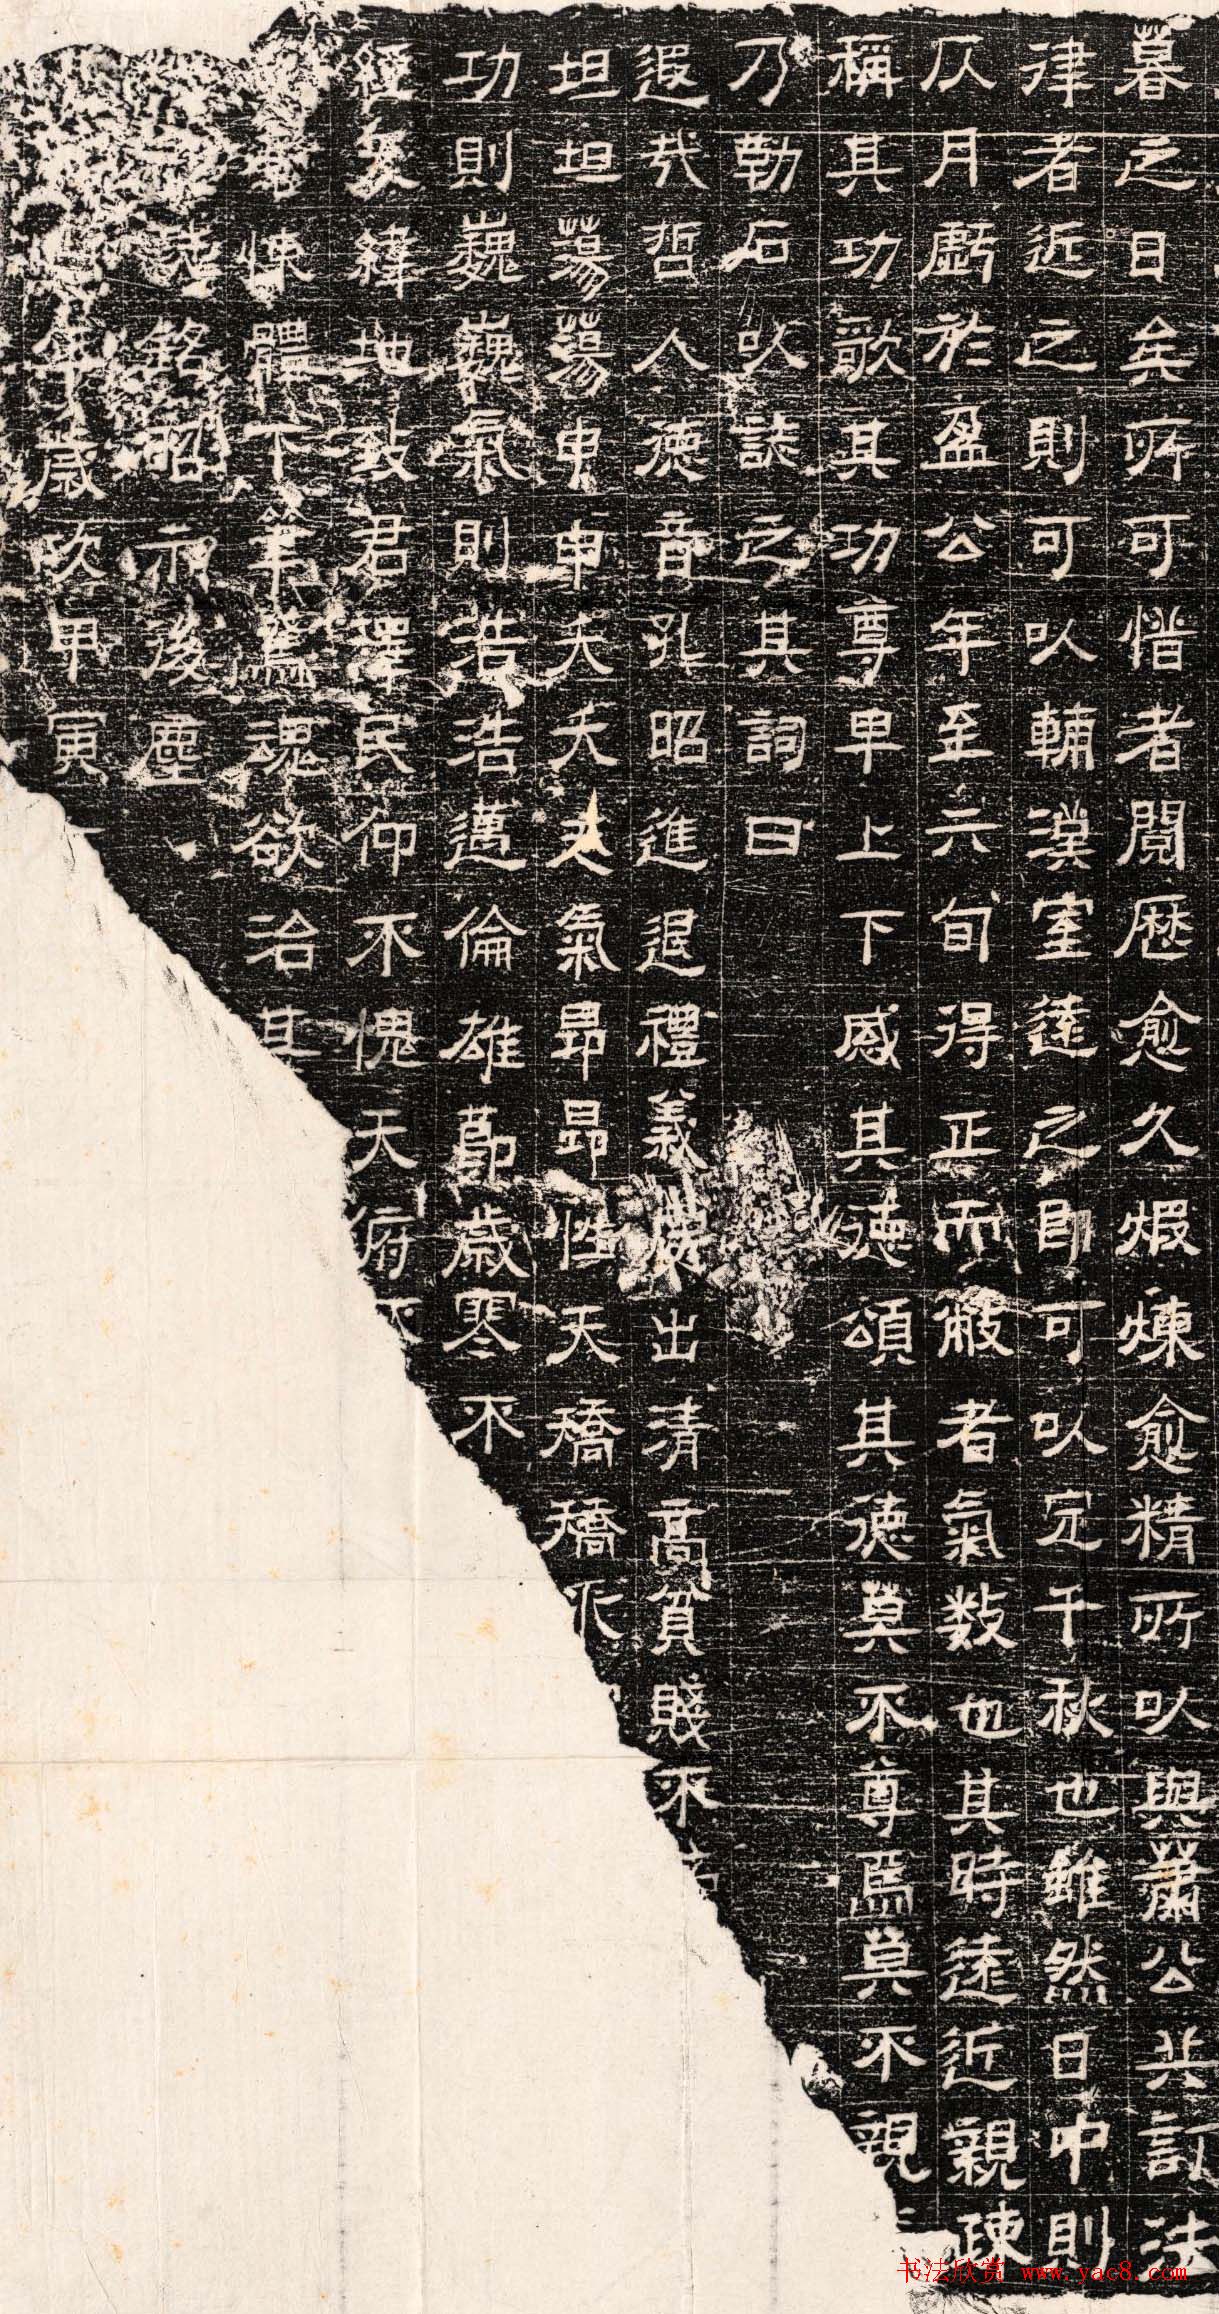 暮之日矣所可惜者閱歷愈久煆煉愈精所以與蕭公共訂法
律者近之則可以輔漢室遠之即可以定千秋也雖然日中則
仄月虧於盈公年至六旬得正而斃者氣数也其時遠近親疎
稱其功歌其功尊卑上下感其德頌其德莫不尊焉莫不親
乃勒石以誌之其詞曰
遐哉哲人德音孔昭進退禮義出清高貧賤不
坦坦蕩蕩申申夭夭夫氣昂昂性天矯矯
功則巍巍氣則浩浩邁倫雄節歲寒不
經緯地致君澤民仰不愧天府不
體下筆魂欲治其
銘昭示後塵
年歲次甲寅
书法欣赏 www.yac8.com